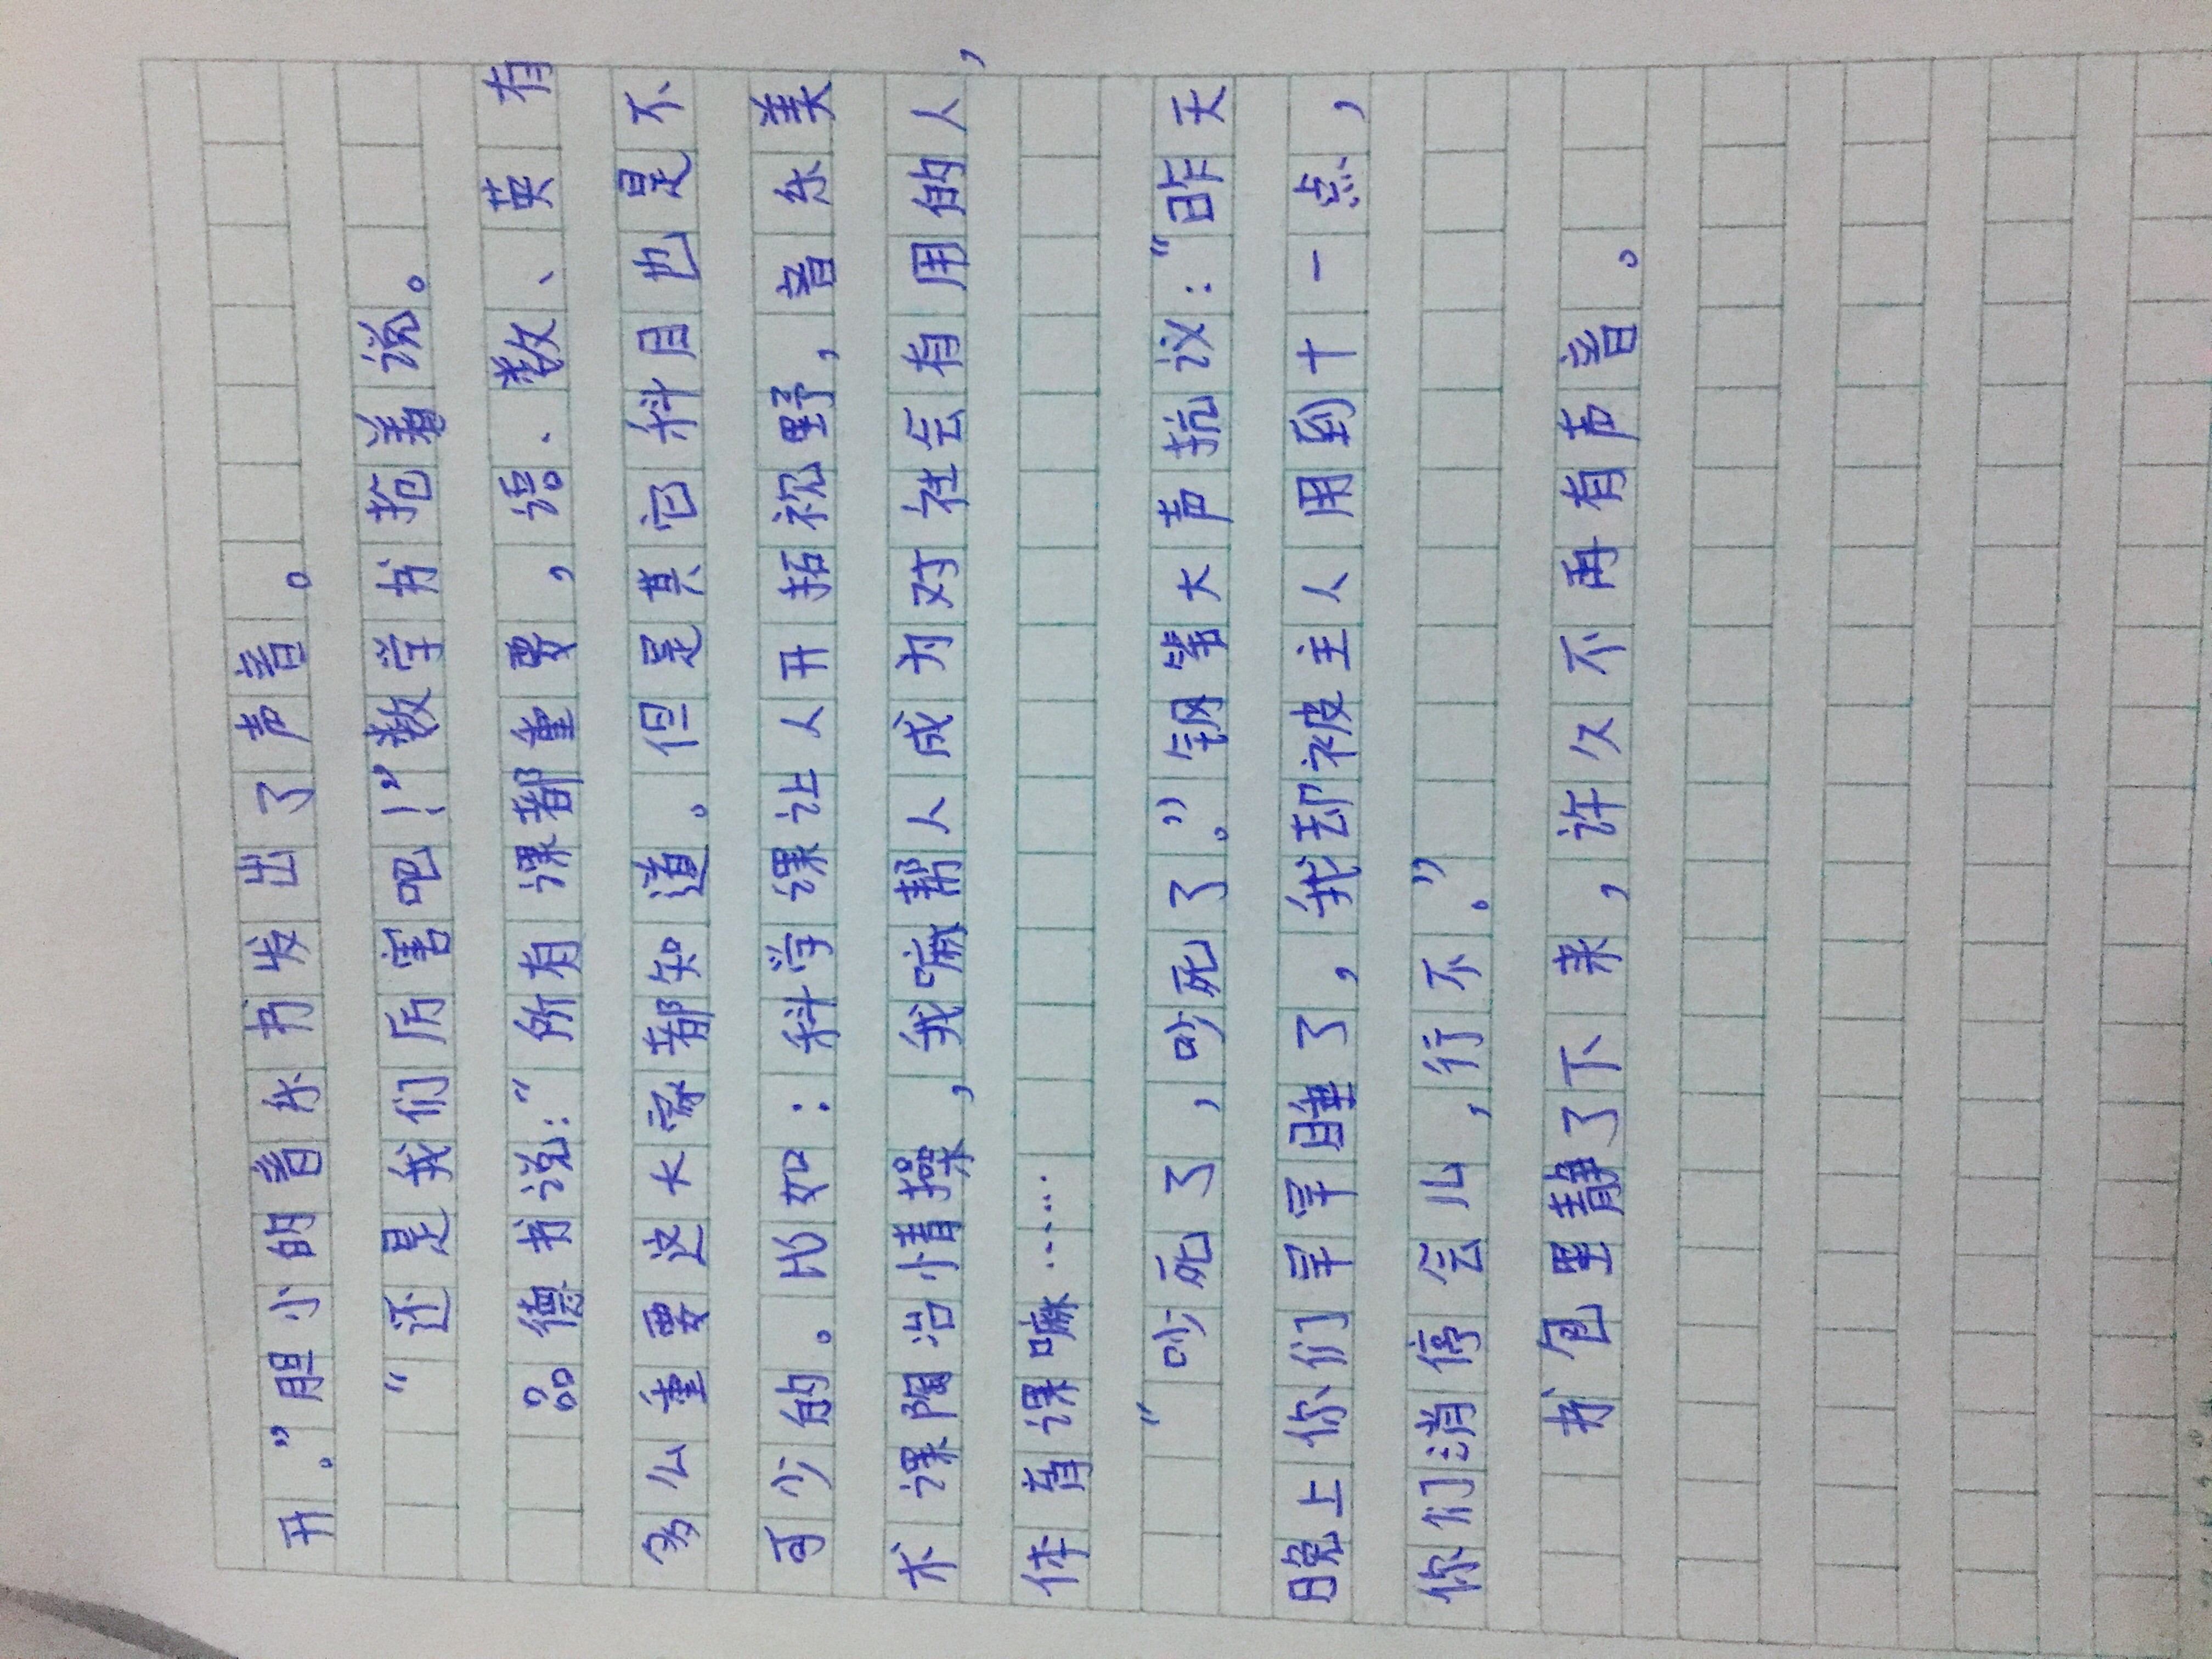 开。”胆小的音乐书发出了声音。
“还是我们厉害吧！”数学书抢着说。
品德书说：“所有课都重要，语、数、英有
多么重要这大家都知道。但是其它科目也是不
可少的。比如：科学课让人开拓视野，音乐美
术课陶冶情操，我嘛帮人成为对社会有用的人，
体育课嘛……
“吵死了，吵死了。”钢笔大声抗议：“昨天
晚上你们早早睡了，我却被主人用到十一点，
你们消停会儿，行不。”
书包里静了下来，许久不再有声音。